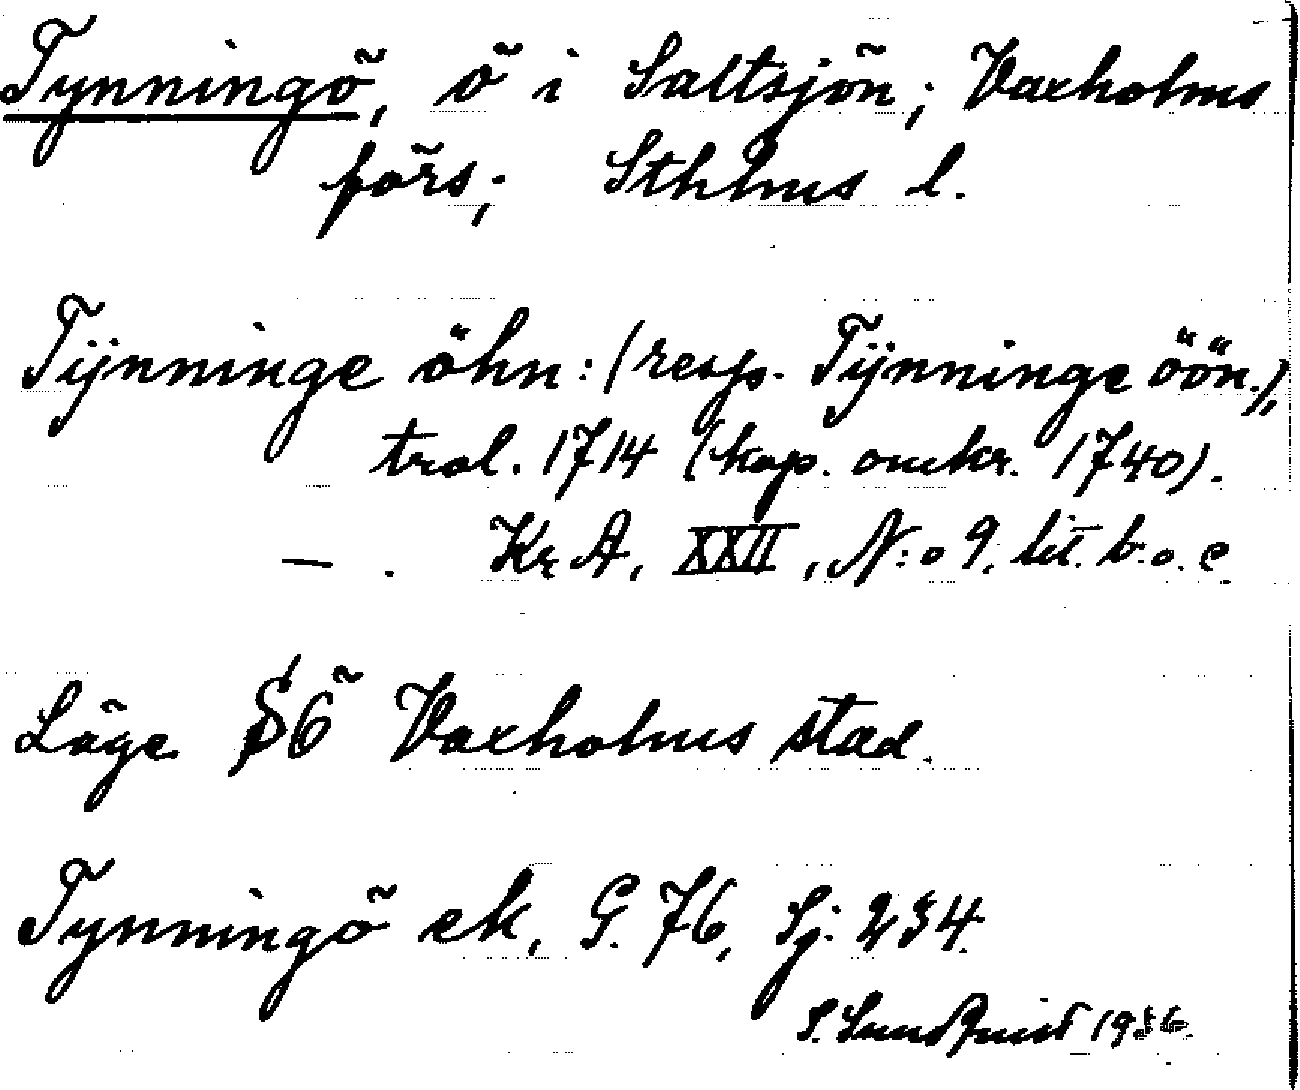 Tynningö, ö i Saltsjön; Vaxholms
förs; Sthlms l.
Tÿnninge öhn: (resp. Tÿnninge öön.),
trol. 1714 (kop. omkr. 1740).
— . KrA, XXII, N:o 9. lit. b. o. c.
Läge SÖ Vaxholms stad.
Tynningö ek, G. 76, Sj: 234
S. Lundquist 1936.